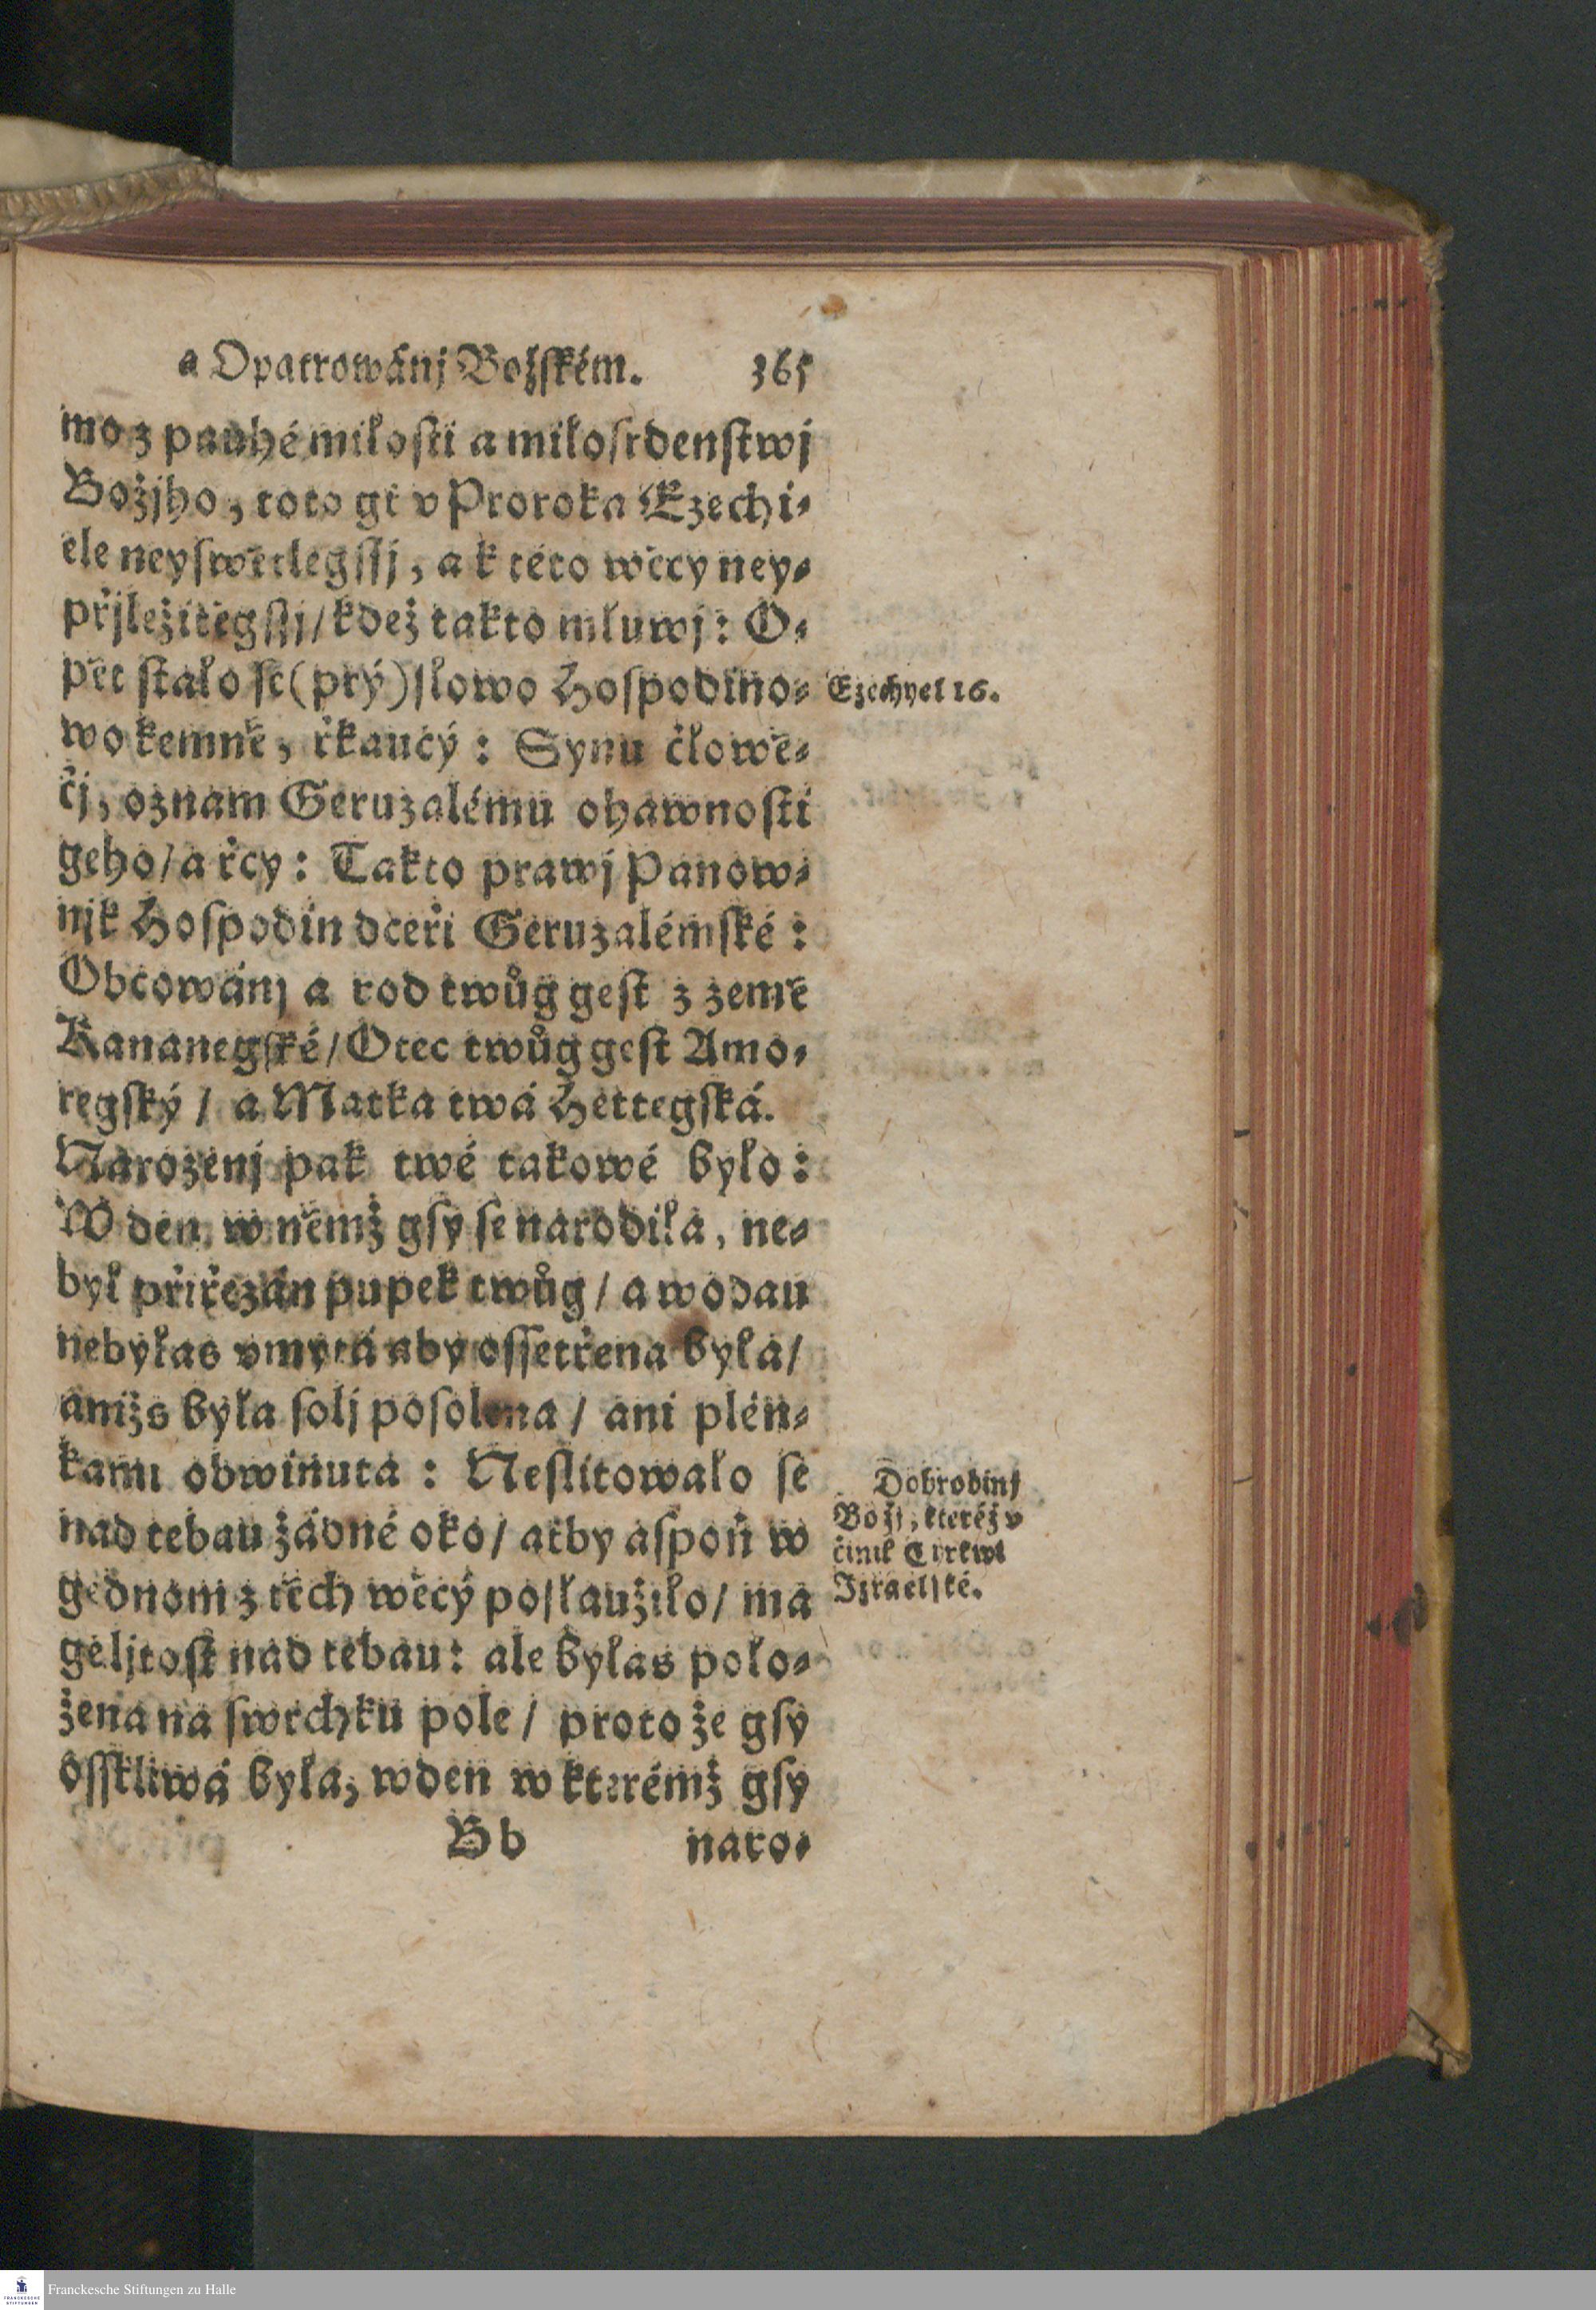 a Opatrowánj Božſkém. 365
mo z pauhé miloſti a miloſrdenſtwj
Božjho, toto gt v Proroka Ezechi⸗
ele neyſwětlegſſj, a k této wěcy ney⸗
přjležitěgſſj/ kdež takto mluwj: O⸗
pět ſtalo ſe (prý) ſlowo Hoſpodino⸗
wo kemně, řkaucý: Synu člowě⸗
čj, oznam Geruzalému ohawnoſti
geho/ a rcy: Takto prawj Panow⸗
njk Hoſpodin dceři Geruzalémſké:
Obcowánj a rod twůg geſt z země
Kananegſké/ Otec twůg geſt Amo⸗
regſký/ a Matka twá Hettegſká.
Narozenj pak twé takowé bylo:
W den, w němž gſy ſe narodila, ne⸗
byl přiřezán pupek twůg/ a wodau
nebylas vmytá aby oſſetřena byla/
anižs byla ſolj poſolena/ ani plén⸗
kami obwinuta: Neſlitowalo ſe
nad tebau žádné oko/ aťby aſpoň w
gednom z těch wěcý poſlaužilo/ ma
geljtoſt nad tebau: ale bylas polo⸗
žena na ſwrchku pole/ proto že gſy
oſſkliwá byla, wden w kterémž gſy
Bb naro⸗
Ezechyel 16.
Dobrodinj
Božj, kteréž v
činil Cýrkwi
Izraelſké.
Franckesche Stiftungen zu Halle